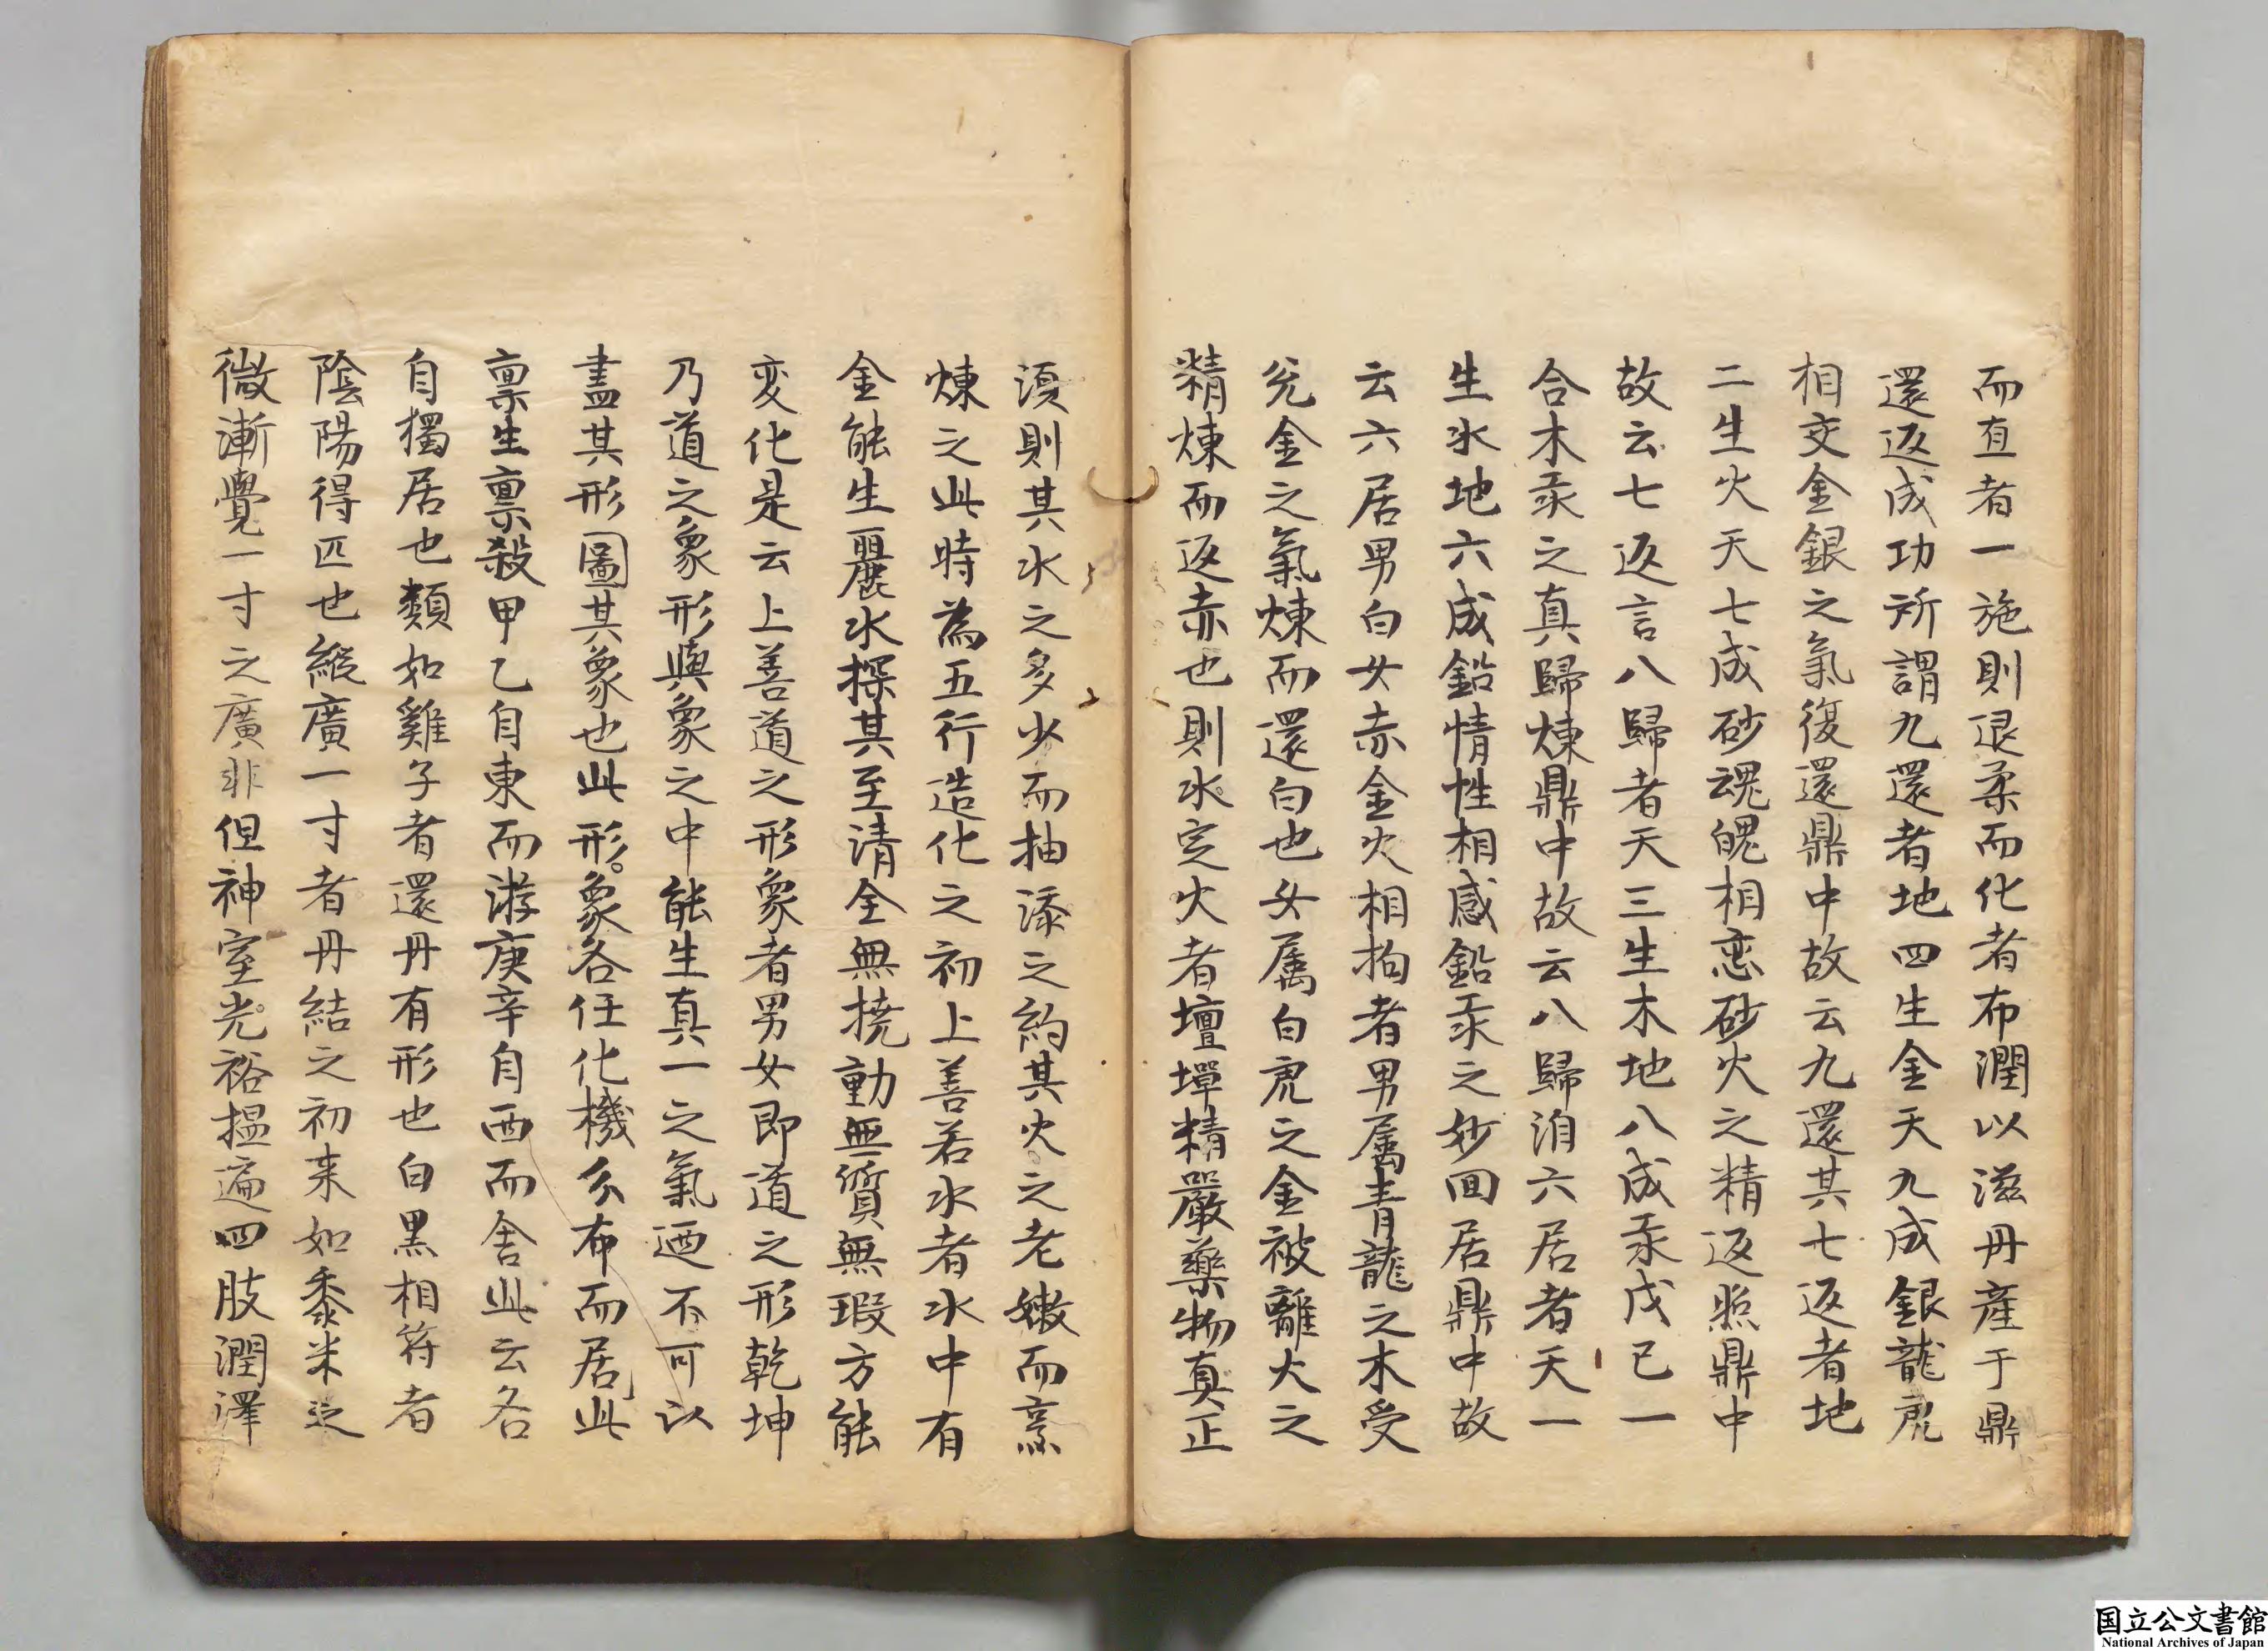 而直者一施則退柔而化者布潤以滋丹産于鼎
還返成功所謂九還者地四生金天九成銀龍虎
相交金銀之氣復還鼎中故云九還其七返者地
二生火天七成砂魂魄相恋砂火之精返照鼎中
故云七返言八歸者天三生木地八成汞戊己一
合木汞之真歸煉鼎中故云八歸洎六居者天一
生水地六成鉛情性相感鉛汞之妙回居鼎中故
云六居男白女赤金火相拘者男属青龍之木受
兊金之氣煉而還白也女属白虎之金被離火之
精煉而返赤也則水定火者壇墠精嚴藥物真正
須則其水之多少而抽添之約其火之老嫩而烹
煉之此時為五行造化之初上善若水者水中有
金能生麗水探其至清全無撓動無質無瑕方能
変化是云上善道之形象者男女即道之形乾坤
乃道之象形與象之中能生真一之氣迺不可以
盡其形圖其象也此形象各任化機分布而居此
稟生稟殺甲乙自東而游庚辛自西而舍此云各
自獨居也類如雞子者還丹有形也白黒相符者
陰陽得匹也縱廣一寸者丹結之初来如黍米迄
微漸覺一寸之廣非但神室光裕揾遍四肢潤澤
国立公文書館
National Archives of Japan